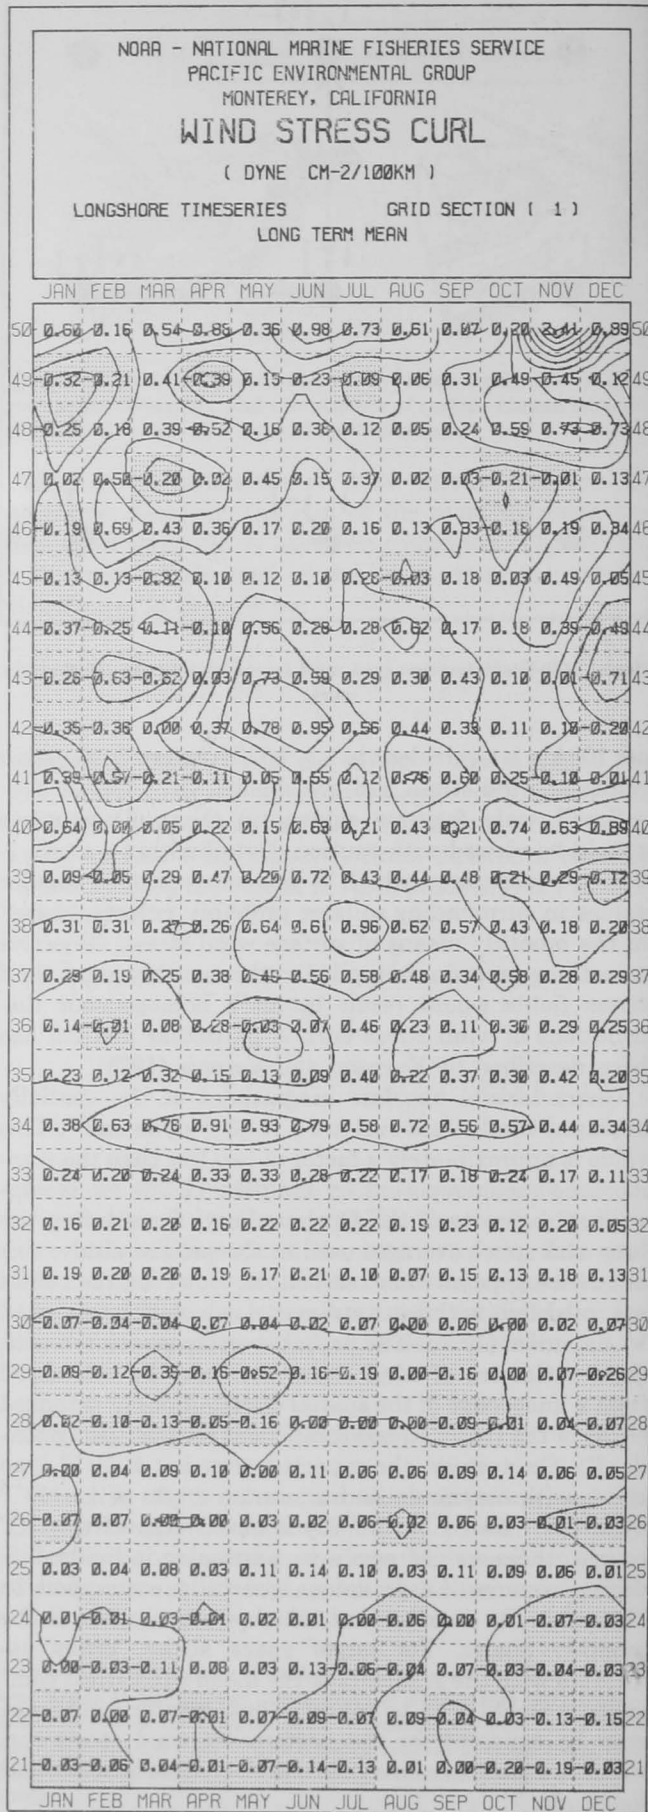 NOAA - NATIONAL MARINE FISHERIES SERVICE
PACIFIC ENVIRONMENTAL GROUP
MONTEREY, CALIFORNIA
WIND STRESS CURL
( DYNE CM-2/100KM )
LONGSHORE TIMESERIES GRID SECTION ( 1 )
LONG TERM MEAN
JAN FEB MAR APR MAY JUN JUL AUG SEP OCT NOV DEC
50 0.60 0.16 0.54 0.85 0.36 0.98 0.73 0.61 0.07 0.20 2.41 0.89 50
49 -0.32 -0.21 0.41 -0.39 0.15 0.23 -0.09 0.06 0.31 0.49 -0.45 0.12 49
48 -0.25 0.18 0.39 -0.52 0.16 0.36 0.12 0.05 0.24 0.59 0.73 0.73 48
47 0.02 0.50 -0.20 0.02 0.45 0.15 0.37 0.02 0.03 -0.21 -0.01 0.13 47
46 -0.19 0.69 0.43 0.36 0.17 0.20 0.16 0.13 0.33 -0.18 0.19 0.34 46
45 -0.13 0.13 -0.32 0.10 0.12 0.10 0.26 -0.03 0.18 0.03 0.49 0.05 45
44 -0.37 -0.25 -0.11 -0.10 0.56 0.28 0.28 0.62 0.17 0.18 0.39 -0.49 44
43 -0.26 -0.63 -0.62 0.03 0.73 0.59 0.29 0.30 0.43 0.10 0.01 -0.71 43
42 -0.35 -0.36 0.00 0.37 0.78 0.95 0.56 0.44 0.39 0.11 -0.18 -0.20 42
41 0.39 -0.57 -0.21 -0.11 0.05 0.55 0.12 0.76 0.60 0.25 -0.10 0.01 41
40 0.64 0.00 0.05 0.22 0.15 0.63 0.21 0.43 0.21 0.74 0.63 0.89 40
39 0.09 -0.05 0.29 0.47 0.29 0.72 0.43 0.44 0.48 0.21 0.29 -0.12 39
38 0.31 0.31 0.27 0.26 0.64 0.61 0.96 0.62 0.57 0.43 0.18 0.20 38
37 0.29 0.19 0.25 0.38 0.45 0.56 0.58 0.48 0.34 0.58 0.28 0.29 37
36 0.14 -0.01 0.08 0.28 -0.03 0.07 0.46 0.23 0.11 0.30 0.29 0.25 36
35 0.23 0.12 0.32 0.15 0.13 0.09 0.40 0.22 0.37 0.30 0.42 0.20 35
34 0.38 0.63 0.76 0.91 0.93 0.79 0.58 0.72 0.56 0.57 0.44 0.34 34
33 0.24 0.20 0.24 0.33 0.33 0.28 0.22 0.17 0.18 0.24 0.17 0.11 33
32 0.16 0.21 0.20 0.16 0.22 0.22 0.22 0.19 0.23 0.12 0.20 0.05 32
31 0.19 0.20 0.20 0.19 0.17 0.21 0.10 0.07 0.15 0.13 0.18 0.13 31
30 -0.07 -0.04 -0.04 0.07 0.04 0.02 0.07 0.00 0.06 0.00 0.02 0.07 30
29 -0.09 -0.12 -0.35 -0.16 -0.52 -0.16 -0.19 0.00 -0.16 0.00 0.07 -0.26 29
28 0.02 -0.10 -0.13 -0.05 -0.16 0.00 0.00 0.00 -0.09 -0.01 0.04 -0.07 28
27 0.00 0.04 0.09 0.10 0.00 0.11 0.06 0.06 0.09 0.14 0.06 0.05 27
26 -0.07 0.07 0.00 0.00 0.03 0.02 0.06 -0.02 0.06 0.03 -0.01 -0.03 26
25 0.03 0.04 0.08 0.03 0.11 0.14 0.10 0.03 0.11 0.09 0.06 0.01 25
24 0.01 -0.01 0.03 -0.01 0.02 0.01 0.00 -0.06 0.00 0.01 -0.07 -0.03 24
23 0.00 -0.03 -0.11 0.08 0.03 0.13 -0.06 -0.04 0.07 -0.03 -0.04 -0.03 23
22 -0.07 0.00 0.07 -0.01 0.07 -0.09 -0.07 0.09 -0.04 0.03 -0.13 -0.15 22
21 -0.03 -0.06 0.04 -0.01 -0.07 -0.14 -0.13 0.01 0.00 -0.20 -0.19 -0.03 21
JAN FEB MAR APR MAY JUN JUL AUG SEP OCT NOV DEC